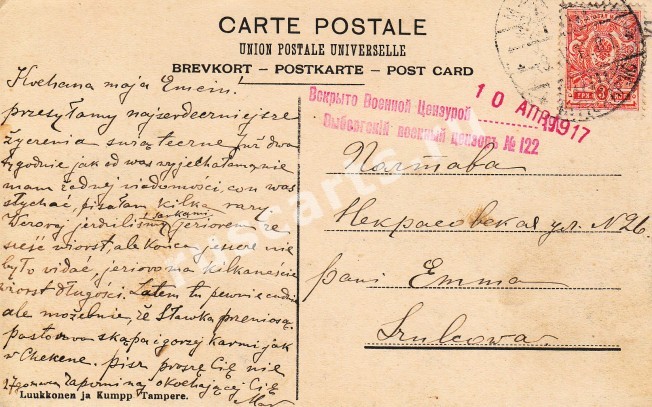 CARTE POSTALE
UNION POSTALE UNIVERSELLE
BREVKORT – POSTKARTE – POST CARD
Kochana moja Emciu!
przesyłamy najserdeczniejsze
życzenia świąteczne już dwa
tygodnie jak od was wyjechałam, nie
mam żadnej wiadomości, co u was
słychać, pisałam kilka razy
sankami
jeziorem ze
sześć wiorst, ale końca jeszcze nie
było vidać, jezioro ma kilkanaście
wiorst długości. Latem tu pewnie cudnie
ale możebnie, że Sławka przeniosą
skąpa i gorzej karmi jak
w Chekene. pisz proszę Cię nie
zapominaj o kochającej Cię
Luukkonen ja Kumpp Tampere.
Вскрыто Военной Цензурой
10 АПР 1917
Выборгский военный цензоръ № 122
Полтава
Некрасовская ул. N 26
pani Emma
Szulcowa
3
ruscarts.ru